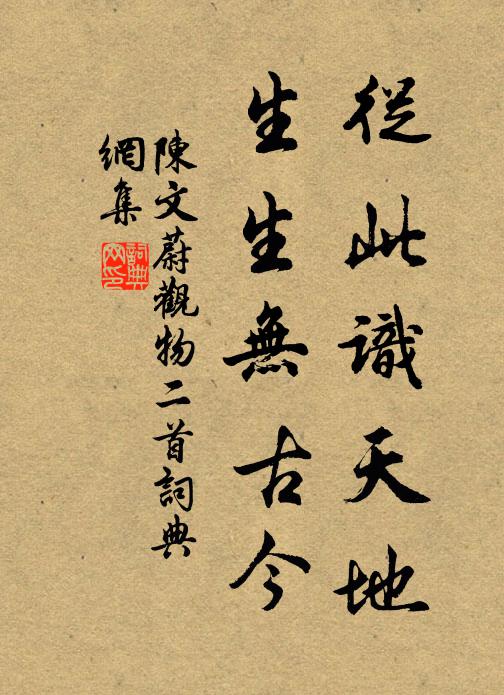 從此識天地
生生無古今
陳文蔚觀物二首詞典
網集
詞典
网印